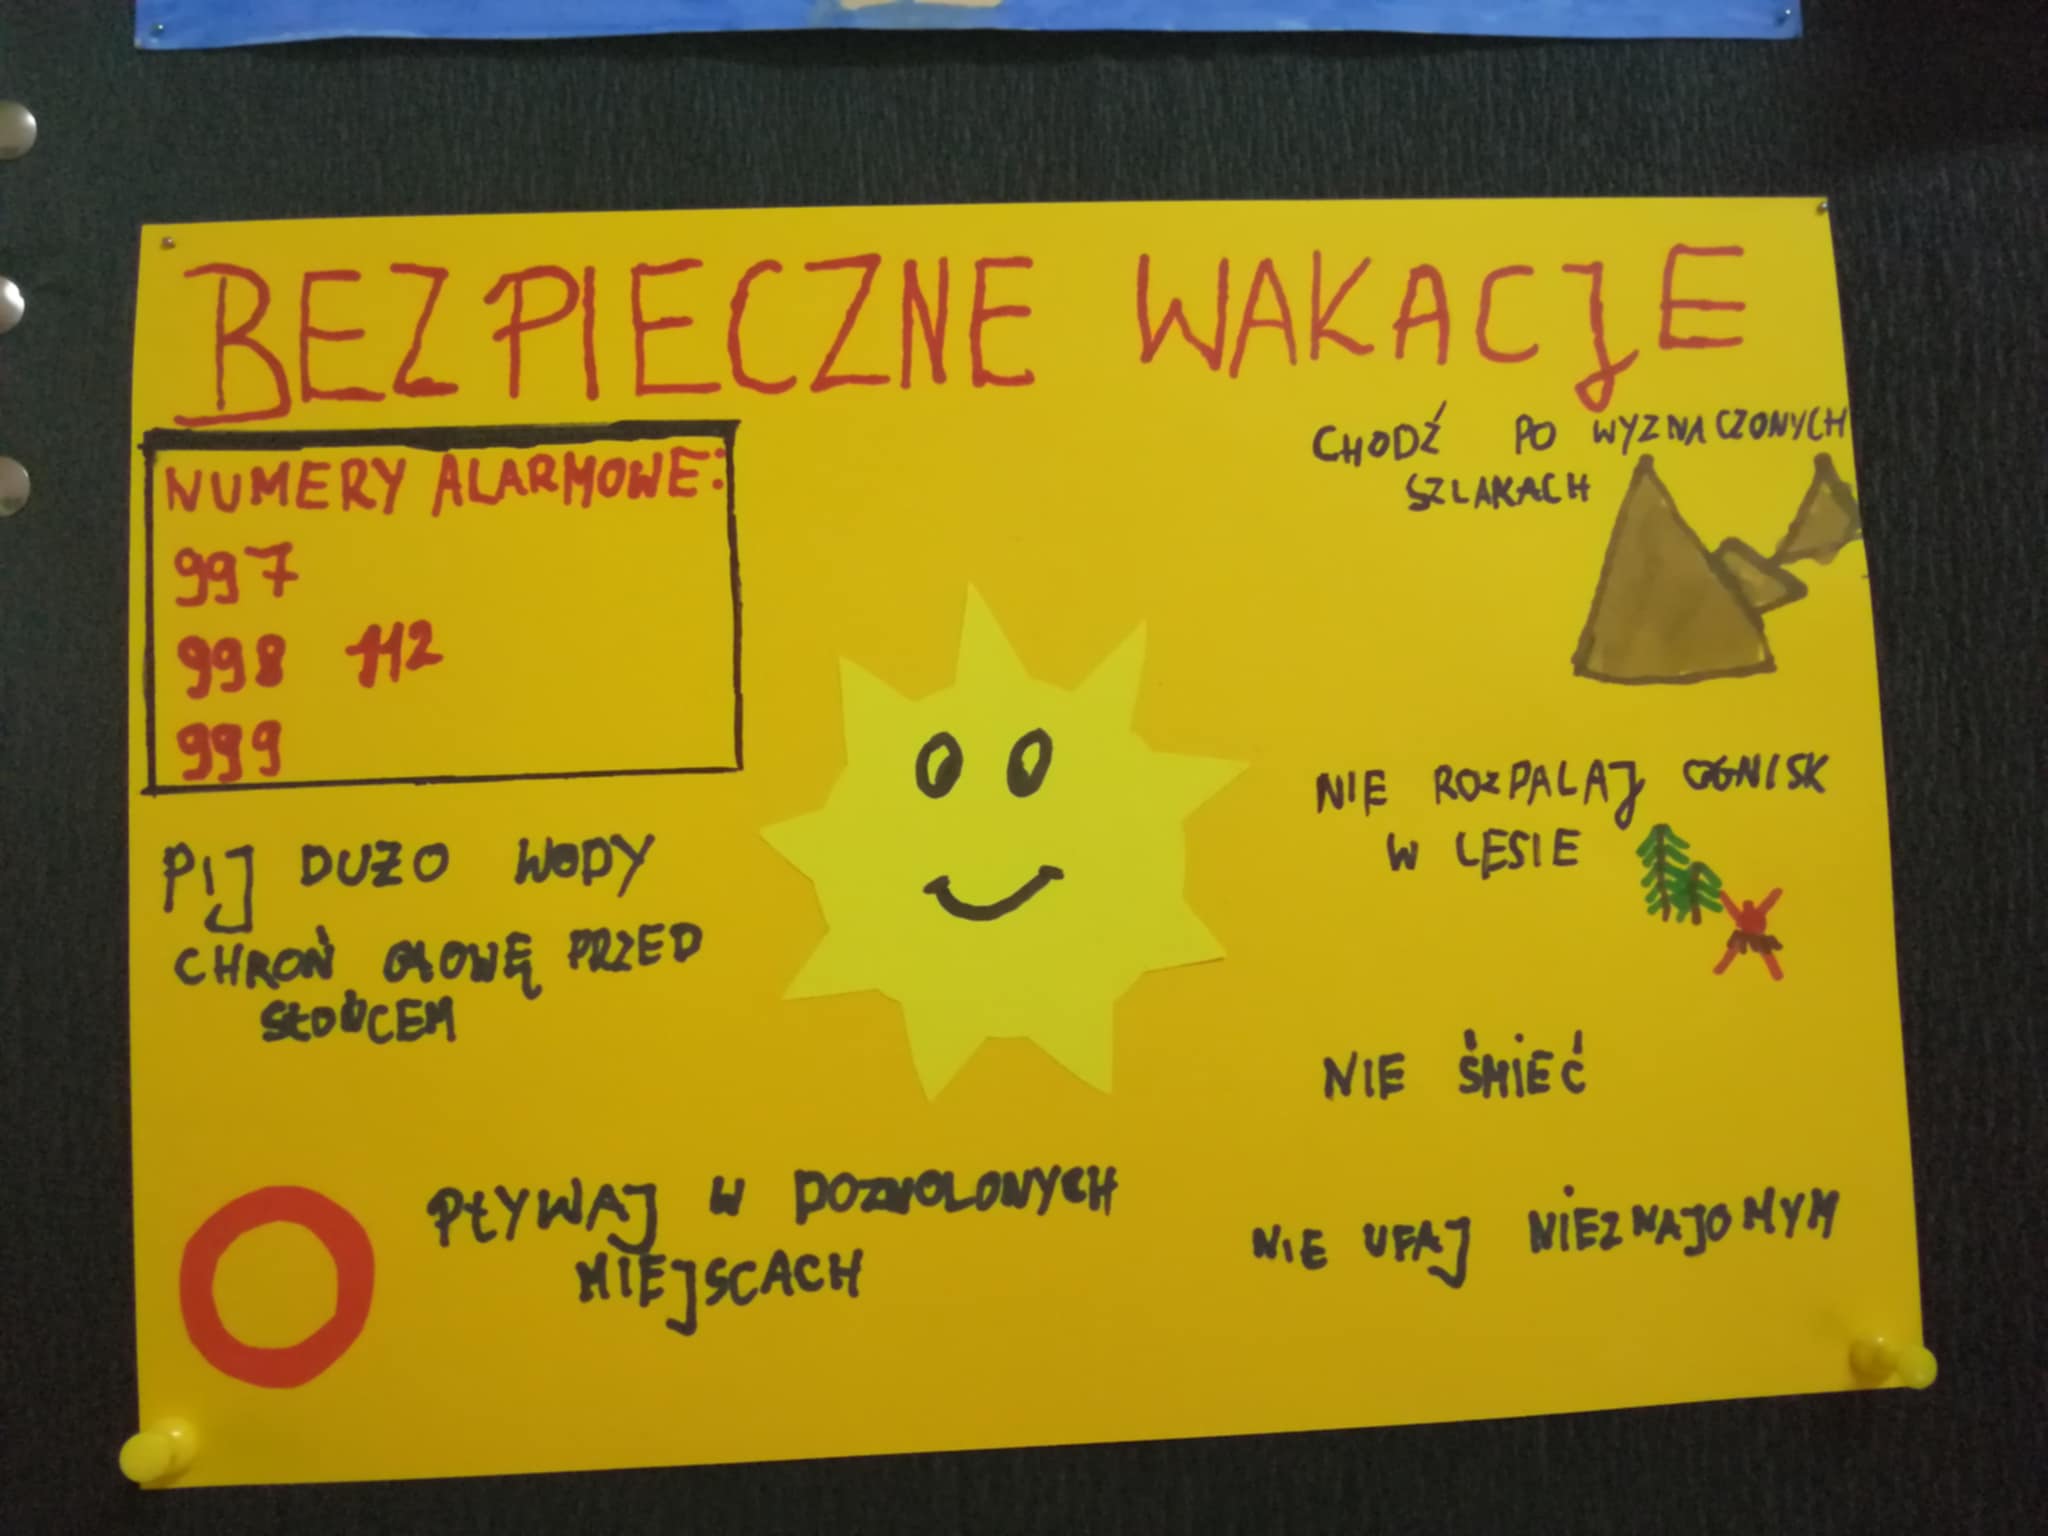 BEZPIECZNE WAKACJE
NUMERY ALARMOWE:
997
998 112
999
PIJ DUŻO WODY
CHROŃ GŁOWĘ PRZED
SŁOŃCEM
PŁYWAJ W DOZWOLONYCH
MIEJSCACH
CHODŹ PO WYZNACZONYCH
SZLAKACH
NIE ROZPALAJ OGNISK
W LESIE
NIE ŚMIEĆ
NIE UFAJ NIEZNAJOMYM